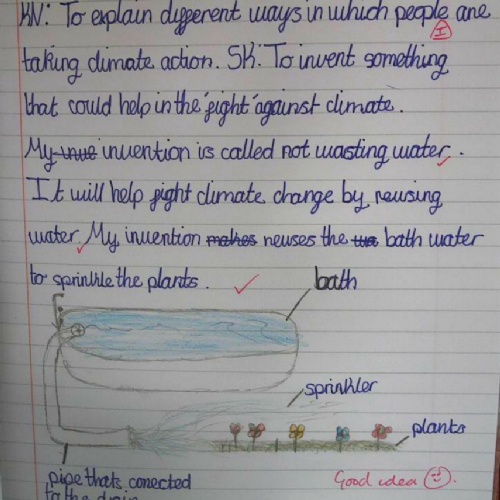 KN: To explain different ways in which people are
I
taking climate action. SK: To invent something
that could help in the 'fight' against climate.
My invention is called not wasting water.
It will help fight climate change by reusing
water. My invention makes reuses the bath water
to sprinkle the plants.
bath
sprinkler
plants
pipe thats conected
to the drain
Good idea